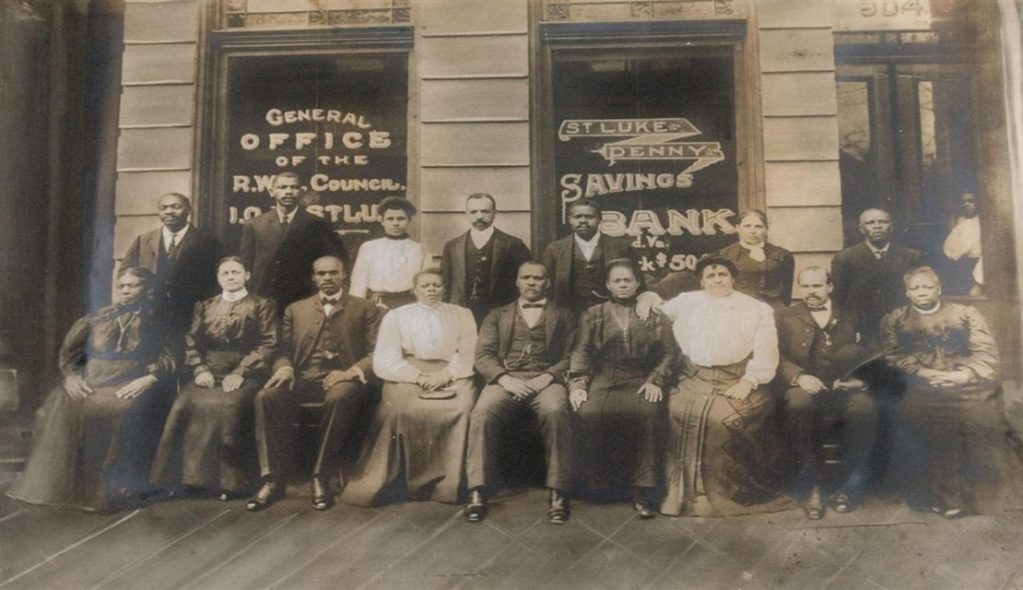 GENERAL
OFFICE
OF THE
R.W. COUNCIL.
I.O. ST LU
ST LUKE
PENNY
SAVINGS
BANK
d.Va.
$50
904